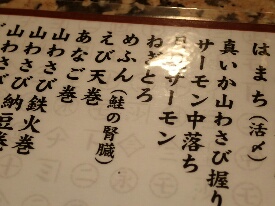 はまち(活〆)
真いか山わさび握り
サーモン中落ち
サーモン
ねぎとろ
めふん(鮭の腎臓)
えび天巻
あなご巻
山わさび巻
山わさび鉄火巻
山わさび納豆巻